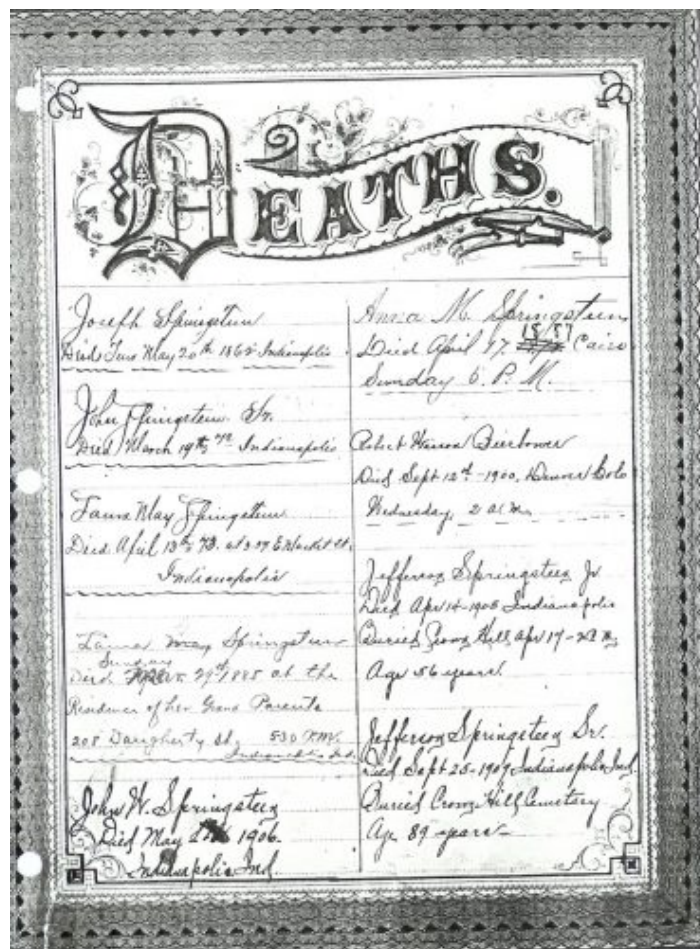 DEATHS.
Joseph Springsteen
Died Tues May 20th 1862 Indianapolis
John Springstein Sr.
Died March 19th Indianapolis
Laura May Springstein
Died April 13th 73. at 307 E Market St.
Indianapolis
Laura May Springsteen
Sunday
Died 29th 1885 at the
Residence of her Grand Parents
208 Daugherty St. 530 P.M.
Indianapolis Ind.
John W. Springsteen
Died May 1906.
Indianapolis Ind.
Anna M. Springsteen
1857
Died April 17. Cairo
Sunday 6. P. M.
Robert Bierbower
Died Sept 12th - 1900, Denver Colo
Wednesday, 2 a.m.
Jefferson Springsteen Jr
Died Apr 14 - 1908 Indianapolis
Buried Crown Hill Apr 17 -
Age 56 years.
Jefferson Springsteen Sr.
Died Sept 25 - 1909 Indianapolis Ind.
Buried Crown Hill Cemetery
Age 89 years -